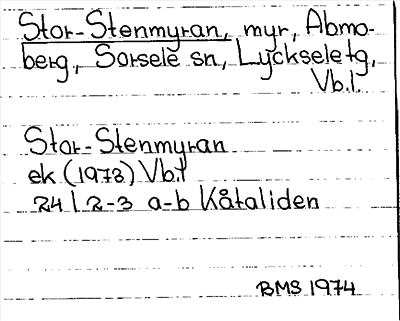 Stor-Stenmyran, myr, Abmo-
berg, Sorsele sn, Lycksele tg,
Vb.l.
Stor-Stenmyran
ek (1973) Vb.l
24 I 2-3 a-b Kåtaliden
BMS 1974